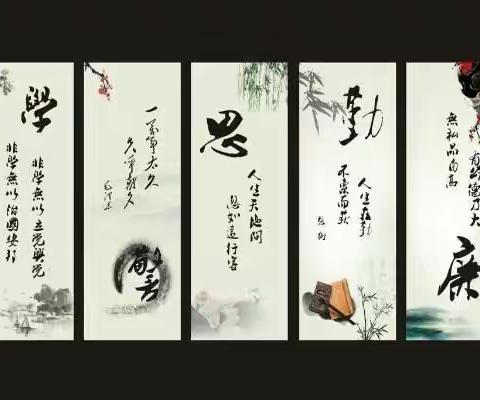 學
非學無以立党興党
非學無以治國安邦
一万年太久
只争朝夕
毛泽东
思
人生天地间
忽如遠行客
勤
人生在勤
不索何獲
张衡
有容德乃大
無私品自高
廉